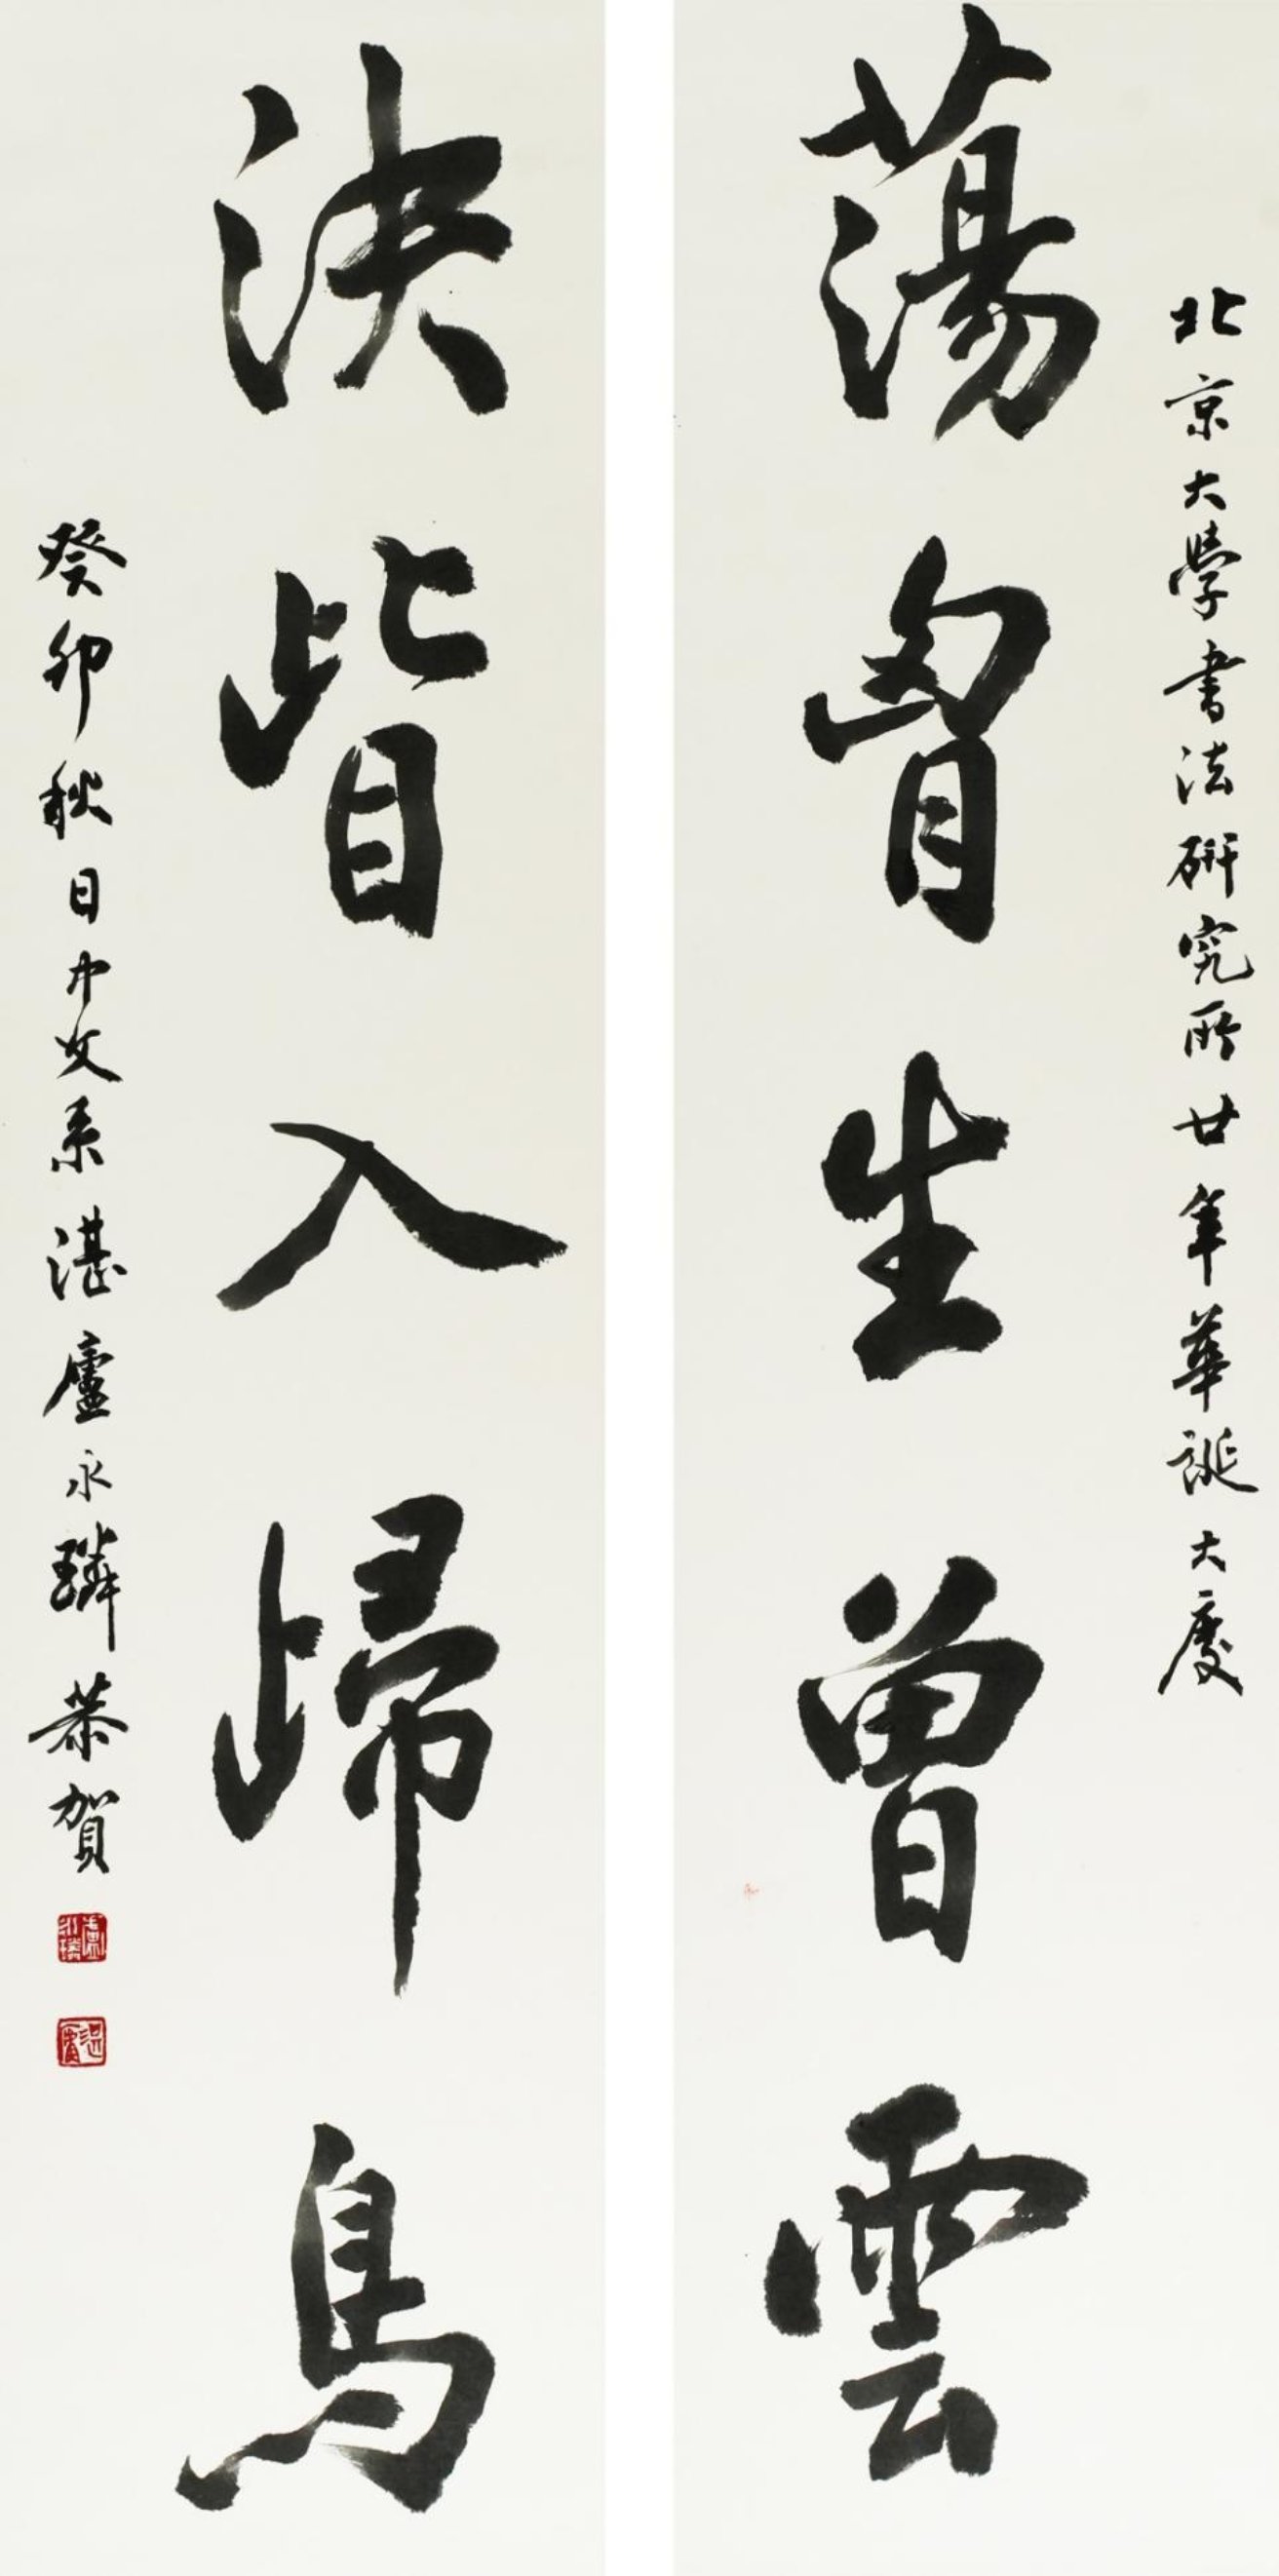 北京大學書法研究所廿年華誕大慶
蕩胷生曾雲
決眥入歸鳥
癸卯秋日中文系湛廬永璘恭賀
盧永璘
湛廬